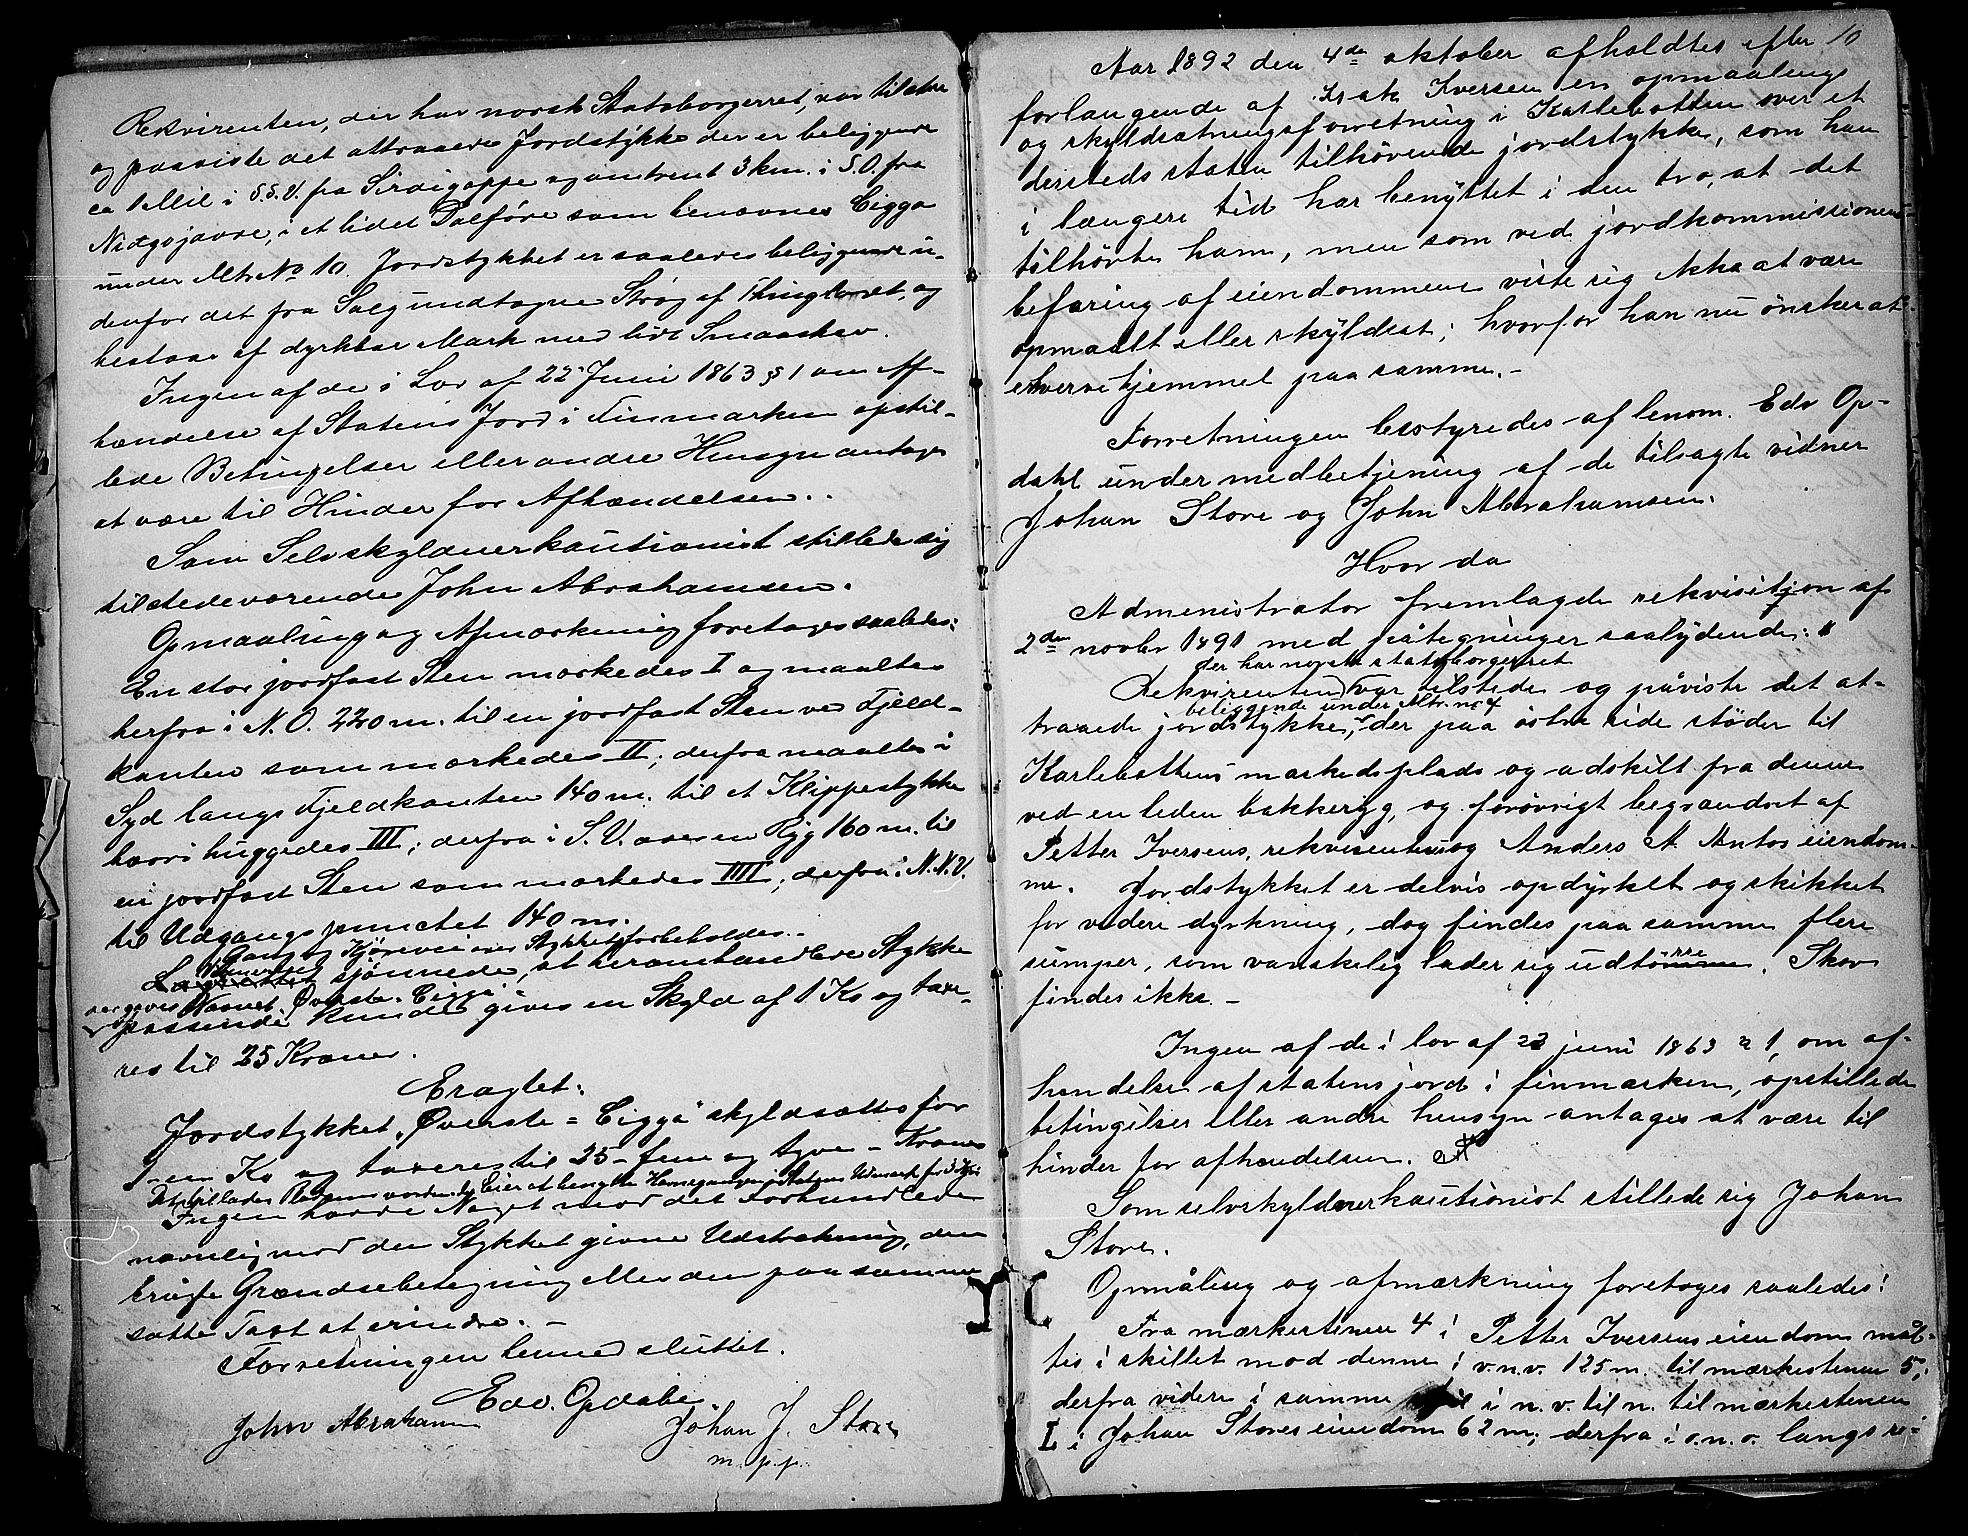 Rekvirenten, der har norsk Statsborgerret, var tilstede
og paaviste det attraaede Jordstykke der er beliggende
ca 1 Mil i S.S.V. fra Sirdigoppe og omtrent 3 km. i S.O. fra
Nidgojavre, i et lidet Dalføre som benævnes Cigga
under Mtr. No 10. Jordstykket er saaledes beliggende u-
denfor det fra Salg undtagne Strøg af Thinglaget, og
bestaar af dyrkbar Mark med lidt Smaaskov.
Ingen af de i Lov af 22 Juni 1863 § 1 om Af-
hændelse af Statens Jord i Finmarken opstil-
lede Betingelser eller andre Hensyn antages
at være til Hinder for Afhændelsen.
Som Selvskyldnerkautionist stillede sig
tilstedeværende John Abrahamsen.
Opmaaling og Afmærkning foretoges saaledes:
En stor jordfast Sten mærkedes I og maaltes
herfra i N.O. 220 m. til en jordfast Sten ved Fjeld-
kanten som mærkedes II; derfra maaltes i
Syd langs Fjeldkanten 140 m. til et Klippestykke
hvori huggedes III; derfra i S.V. over en Ryg 160 m. til
en jordfast Sten som mærkedes IIII; derfra i N.N.V.
til Udgangspunctet 140 m.
Gang og Kjørevei over Stykket forbeholdes.
skjønnede, at heromhandlede Stykke
der gives Navnet "Øverste-Cigga"
passende kunde gives en Skyld af 1 Ks og taxe-
res til 25 Kroner.
Eragtet:
Jordstykket "Øverste=Cigga" skyldsættes for
1- en Ks og taxeres til 25- fem og tyve - Kroner
Ingen havde Noget mod det Forhandlede
navnlig mod den Stykket givne Udstrækning, den
brugte Grændsebetegning eller den paa samme
satte Taxt at erindre. -
Forretningen hermed sluttet.
Edv. Opdahl
John Abrahamsen Johan J. Store
m. p. p.
10
Aar 1892 den 4de oktober afholdtes efter
forlangende af Isak Iversen en opmaalings
og skyldsætningsforretning i Karlebotten over et
dersteds staten tilhörende jordstykke, som han
i længere tid har benyttet i den tro, at det
tilhörte ham, men som ved jordkommissionens
befaring af eiendommene viste sig ikke at være
opmaalt eller skyldsat; hvorfor han nu ønsker at
erhverve hjemmel paa samme. -
Forretningen bestyredes af lensm. Edv Op-
dahl under medbetjening af de tilsagte vidner
Johan Store og John Abrahamsen.
Hvor da
Administrator fremlagde rekvisition af
2den novbr 1891 med påtegninger saalydende:
der har norsk statsborgerret
Rekvirenten var tilstede og påviste det at-
beliggende under Mtr. no 4
traaede jordstykke, der paa östre side stöder til
Karlebottens markedsplads og adskilt fra denne
ved en liden bakkeryg, og forövrigt begrændset af
Petter Iversens, rekvirentens og Anders A. Antos eiendom-
me. Jordstykket er delvis opdyrket og skikket
for videre dyrkning, dog findes paa samme flere
sumper, som vanskelig lader sig udtörre. Skov
findes ikke. -
Ingen af de i lov af 22 juni 1863 § 1, om af-
hændelse af statens jord i finmarken, opstillede
betingelser eller andre hensyn antages at være til
hinder for afhændelsen.
Som selvskyldnerkautionist stillede sig Johan
Store.
Opmåling og afmærkning foretoges saaledes:
Fra mærkestenen 4 i Petter Iversens eiendom mål-
tes i skillet mod denne i v.n.v. 125 m. til mærkestenen 5;
derfra videre i samme i n. v. til n. til mærkestenen
I i Johan Stores eiendom 62 m; derfra i o.n.o. langs si-